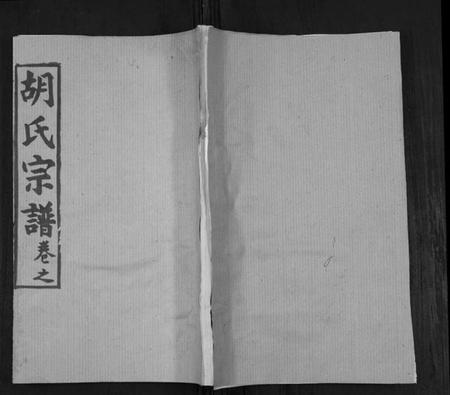 胡氏宗譜卷之